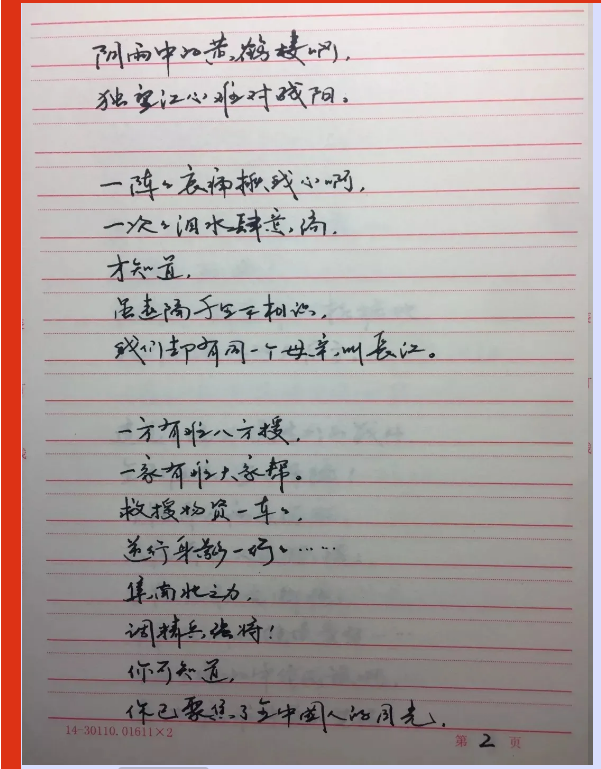 阴雨中的黄鹤楼啊，
独望江心难对残阳。
一阵々哀痛揪我心啊，
一次々泪水肆意淌，
才知道，
虽远隔千里不相识，
我们却有同一个母亲叫长江。
一方有难八方援，
一家有难大家帮。
救援物资一车々，
逆行身影一行々……
集南北之力，
调精兵强将！
你可知道，
你已聚焦了全中国人的目光，
14-30110.01611×2
第 2 页